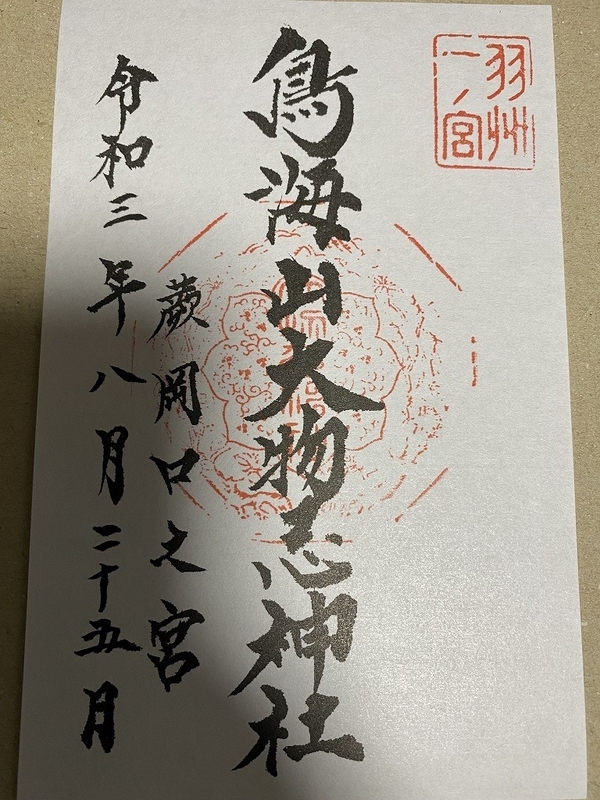 羽州
一ノ宮
鳥海山大物忌神社
蕨岡口之宮
令和三年八月二十五日